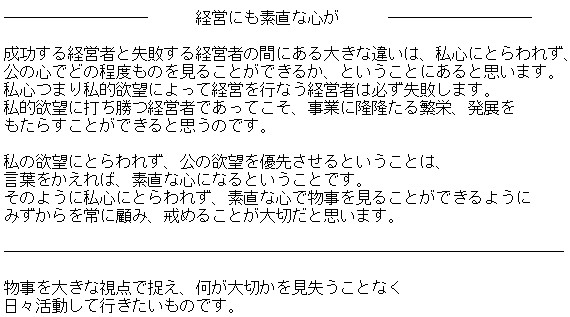 経営にも素直な心が
成功する経営者と失敗する経営者の間にある大きな違いは、私心にとらわれず、
公の心でどの程度ものを見ることができるか、ということにあると思います。
私心つまり私的欲望によって経営を行なう経営者は必ず失敗します。
私的欲望に打ち勝つ経営者であってこそ、事業に隆隆たる繁栄、発展を
もたらすことができると思うのです。
私の欲望にとらわれず、公の欲望を優先させるということは、
言葉をかえれば、素直な心になるということです。
そのように私心にとらわれず、素直な心で物事を見ることができるように
みずからを常に顧み、戒めることが大切だと思います。
物事を大きな視点で捉え、何が大切かを見失うことなく
日々活動して行きたいものです。